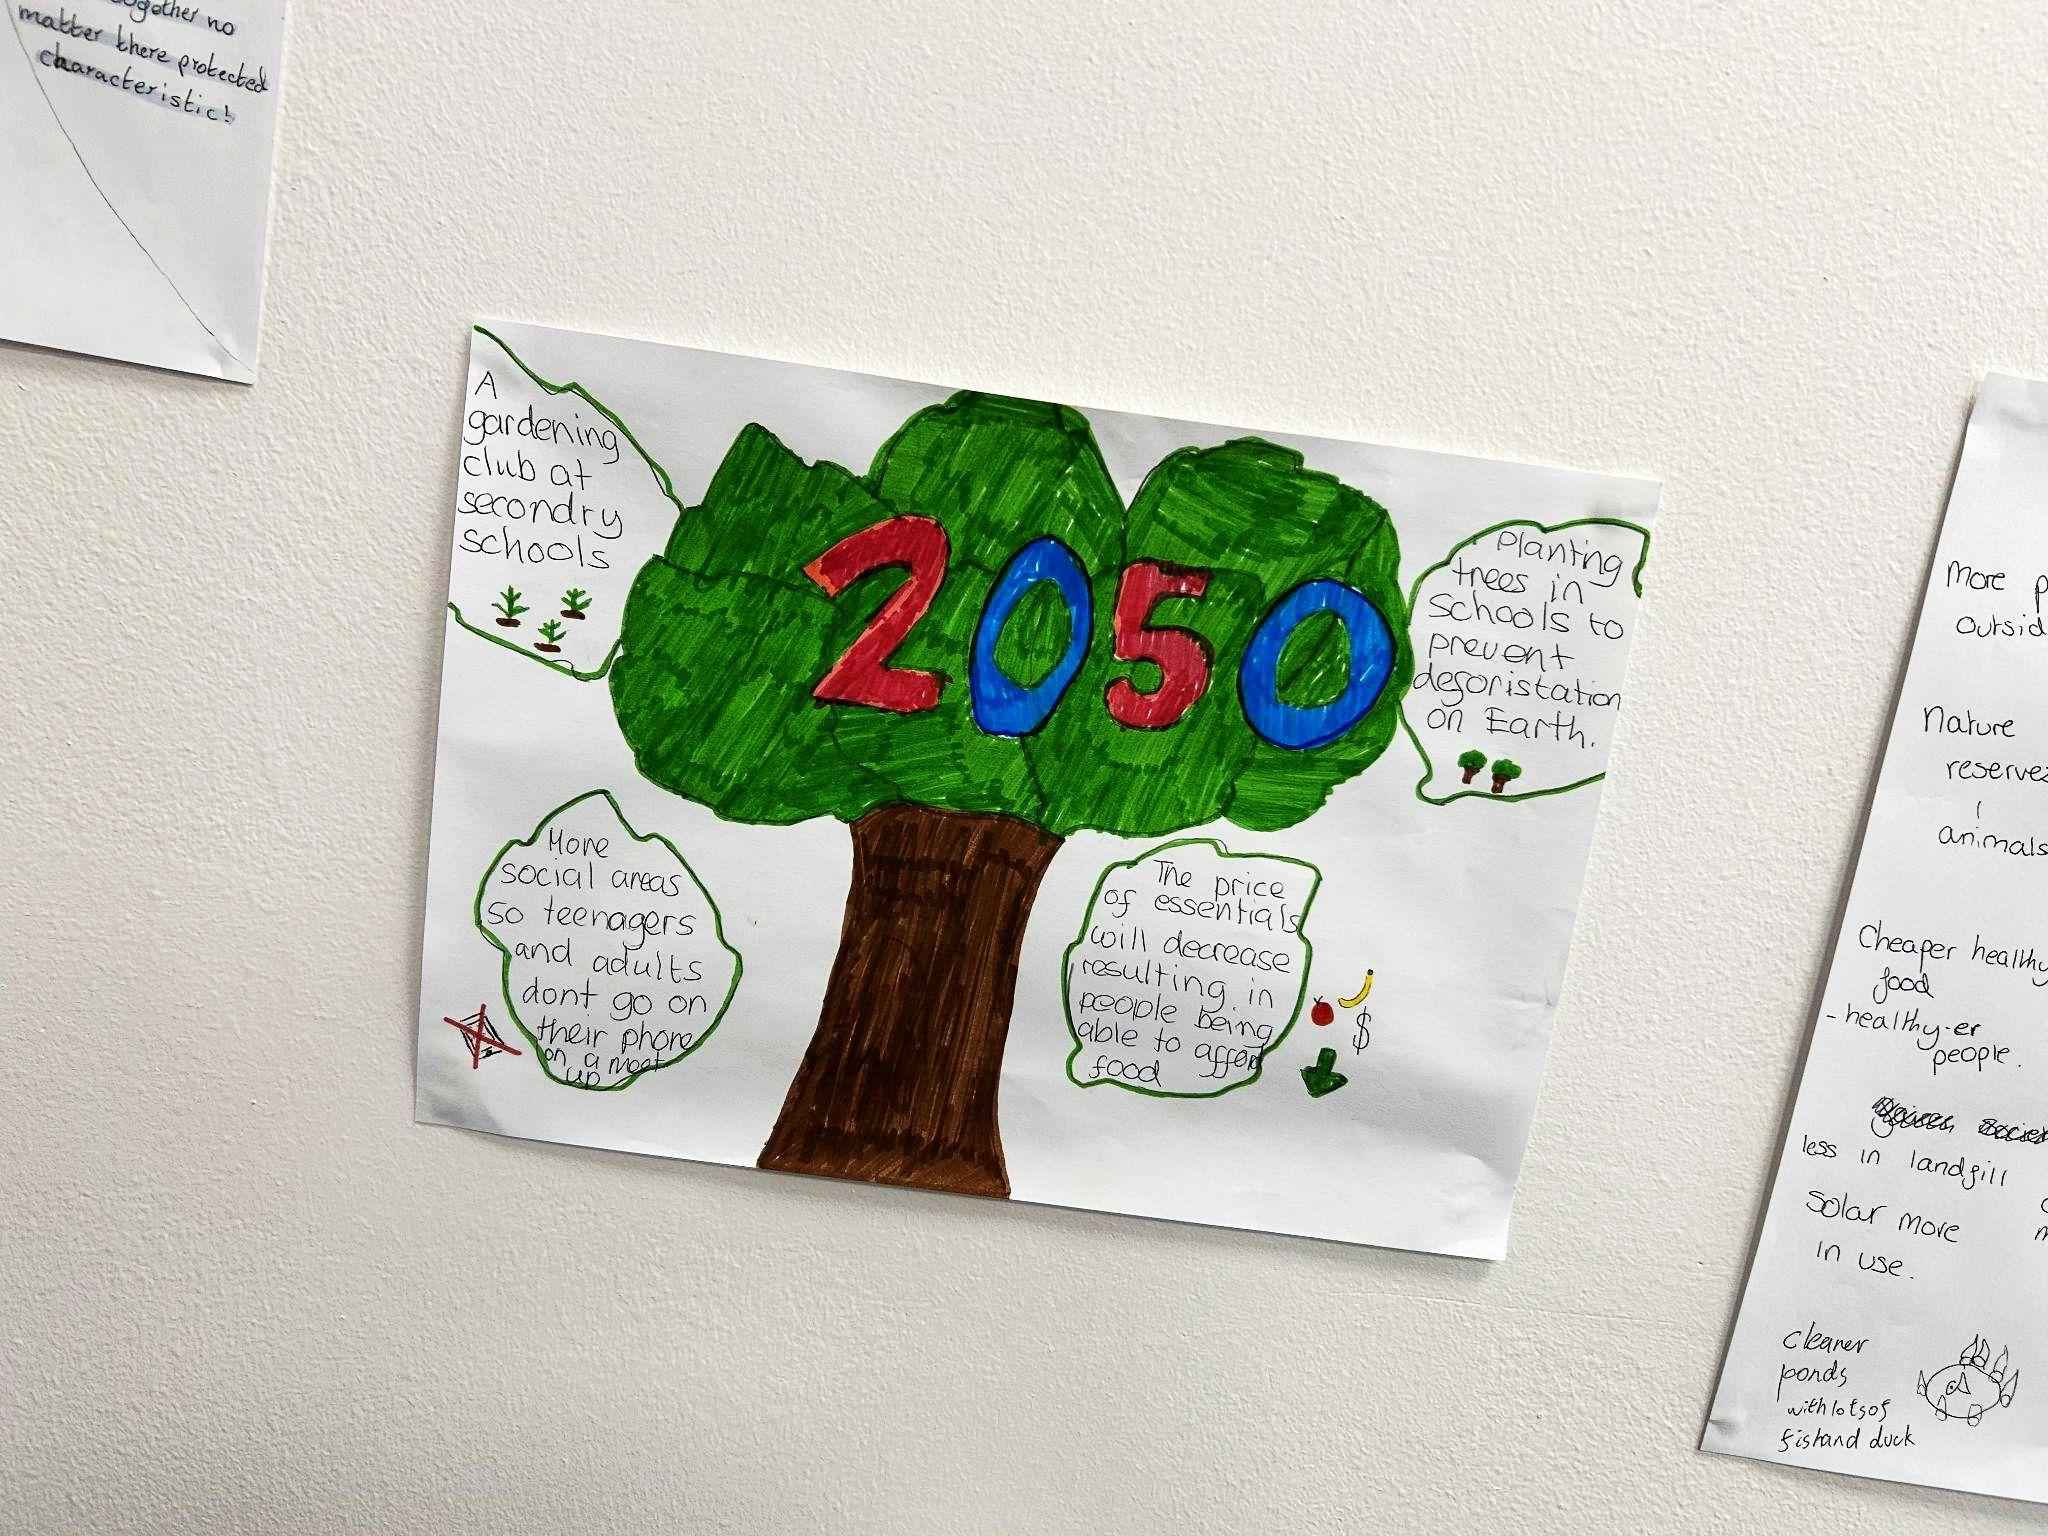 together no
matter there protected
characteristic!
A
gardening
club at
secondry
schools
2050
Planting
trees in
schools to
prevent
deforistation
on Earth.
More
social areas
so teenagers
and adults
dont go on
their phone
on a meet
up
The price
of essentials
will decrease
resulting in
people being
able to afford
food
$
More
outsid
Nature
reserves
animals
Cheaper healthy
food
- healthy-er
people.
less in landfill
Solar more
in use.
cleaner
ponds
with lots of
fish and duck